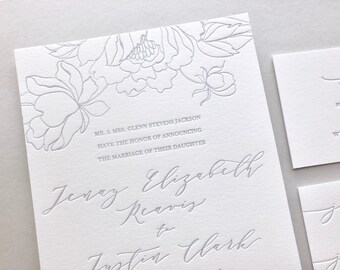 MR. & MRS. GLENN STEVENS JACKSON
HAVE THE HONOR OF ANNOUNCING
THE MARRIAGE OF THEIR DAUGHTER
Jenay Elizabeth
Reavis
to
Justin Clark